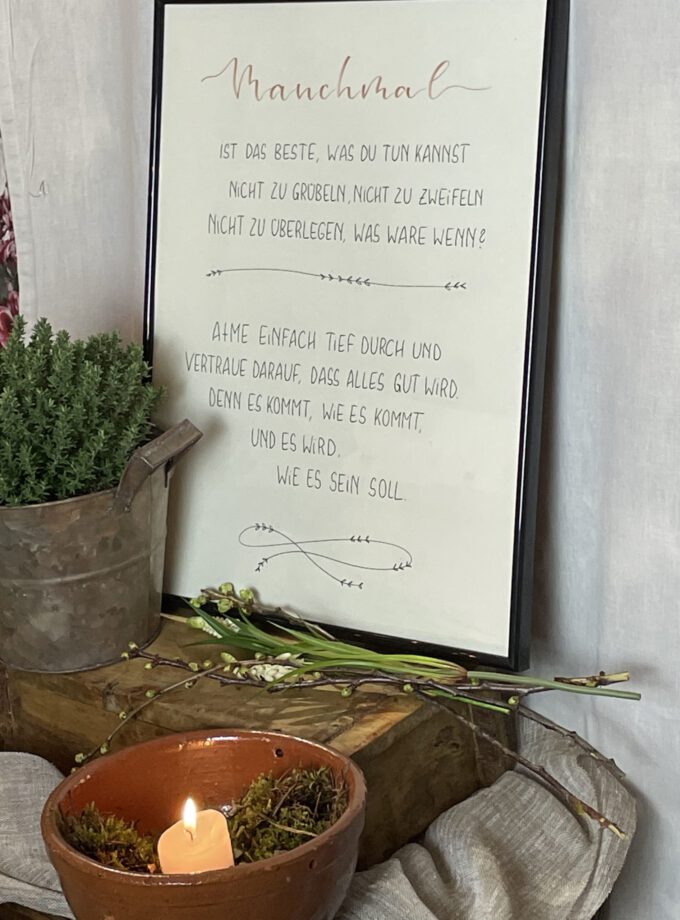 Manchmal
IST DAS BESTE, WAS DU TUN KANNST
NICHT ZU GRÜBELN, NICHT ZU ZWEIFELN
NICHT ZU ÜBERLEGEN, WAS WÄRE WENN?
ATME EINFACH TIEF DURCH UND
VERTRAUE DARAUF, DASS ALLES GUT WIRD.
DENN ES KOMMT, WIE ES KOMMT,
UND ES WIRD,
WIE ES SEIN SOLL.